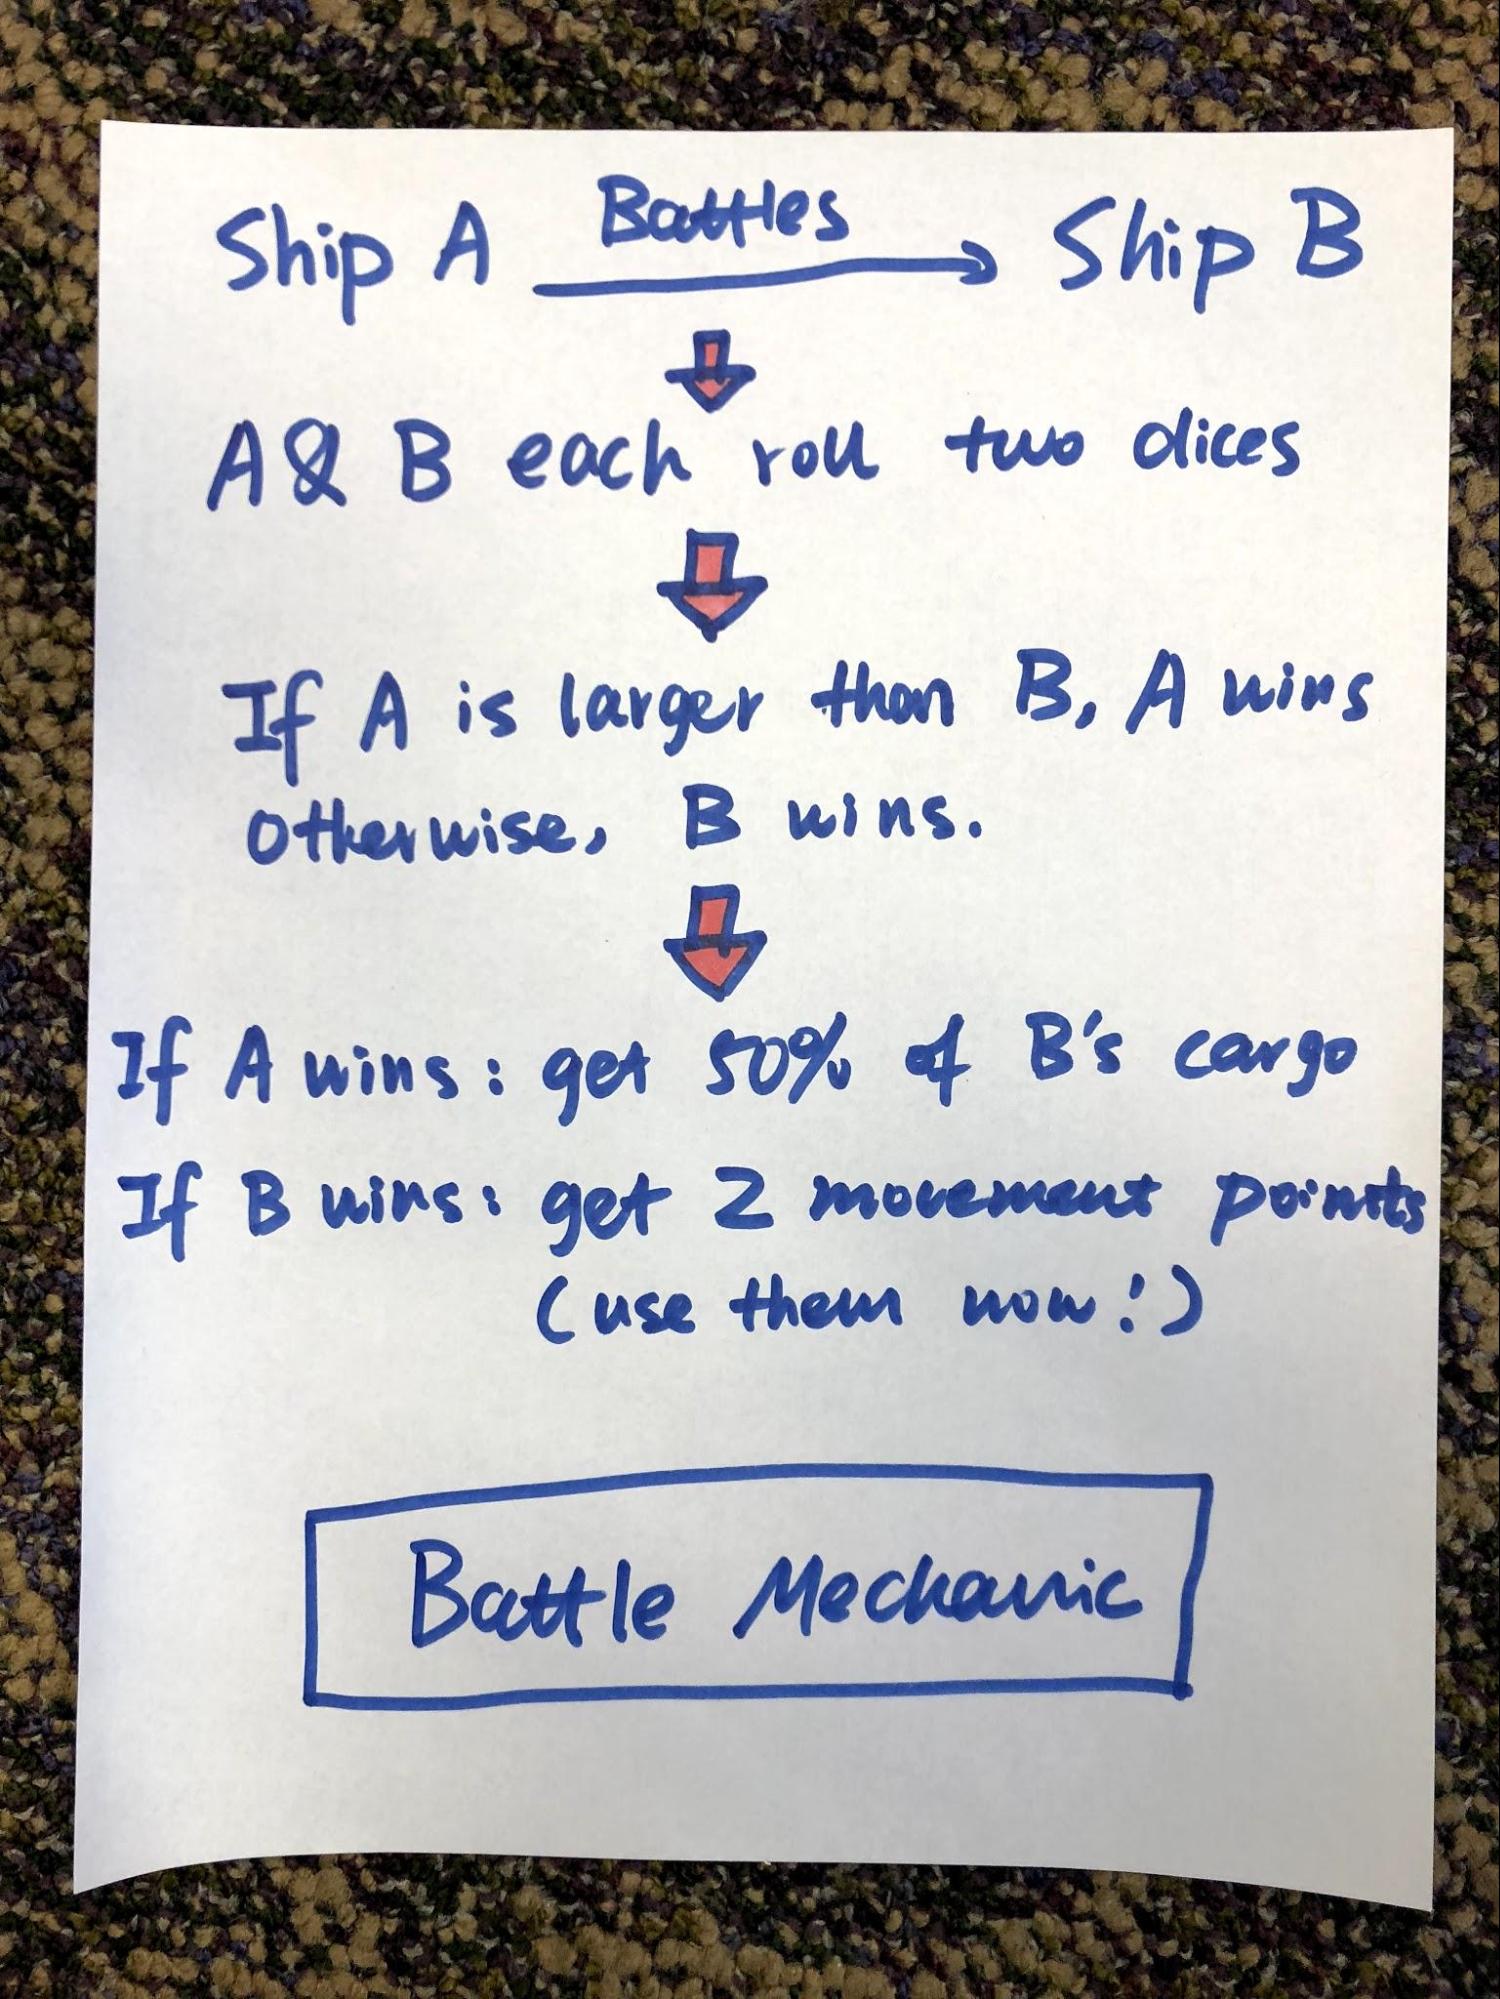 Battles
Ship A Ship B
A & B each roll two dices
If A is larger than B, A wins
otherwise, B wins.
If A wins: get 50% of B's cargo
If B wins: get 2 movement points
(use them now!)
Battle Mechanic